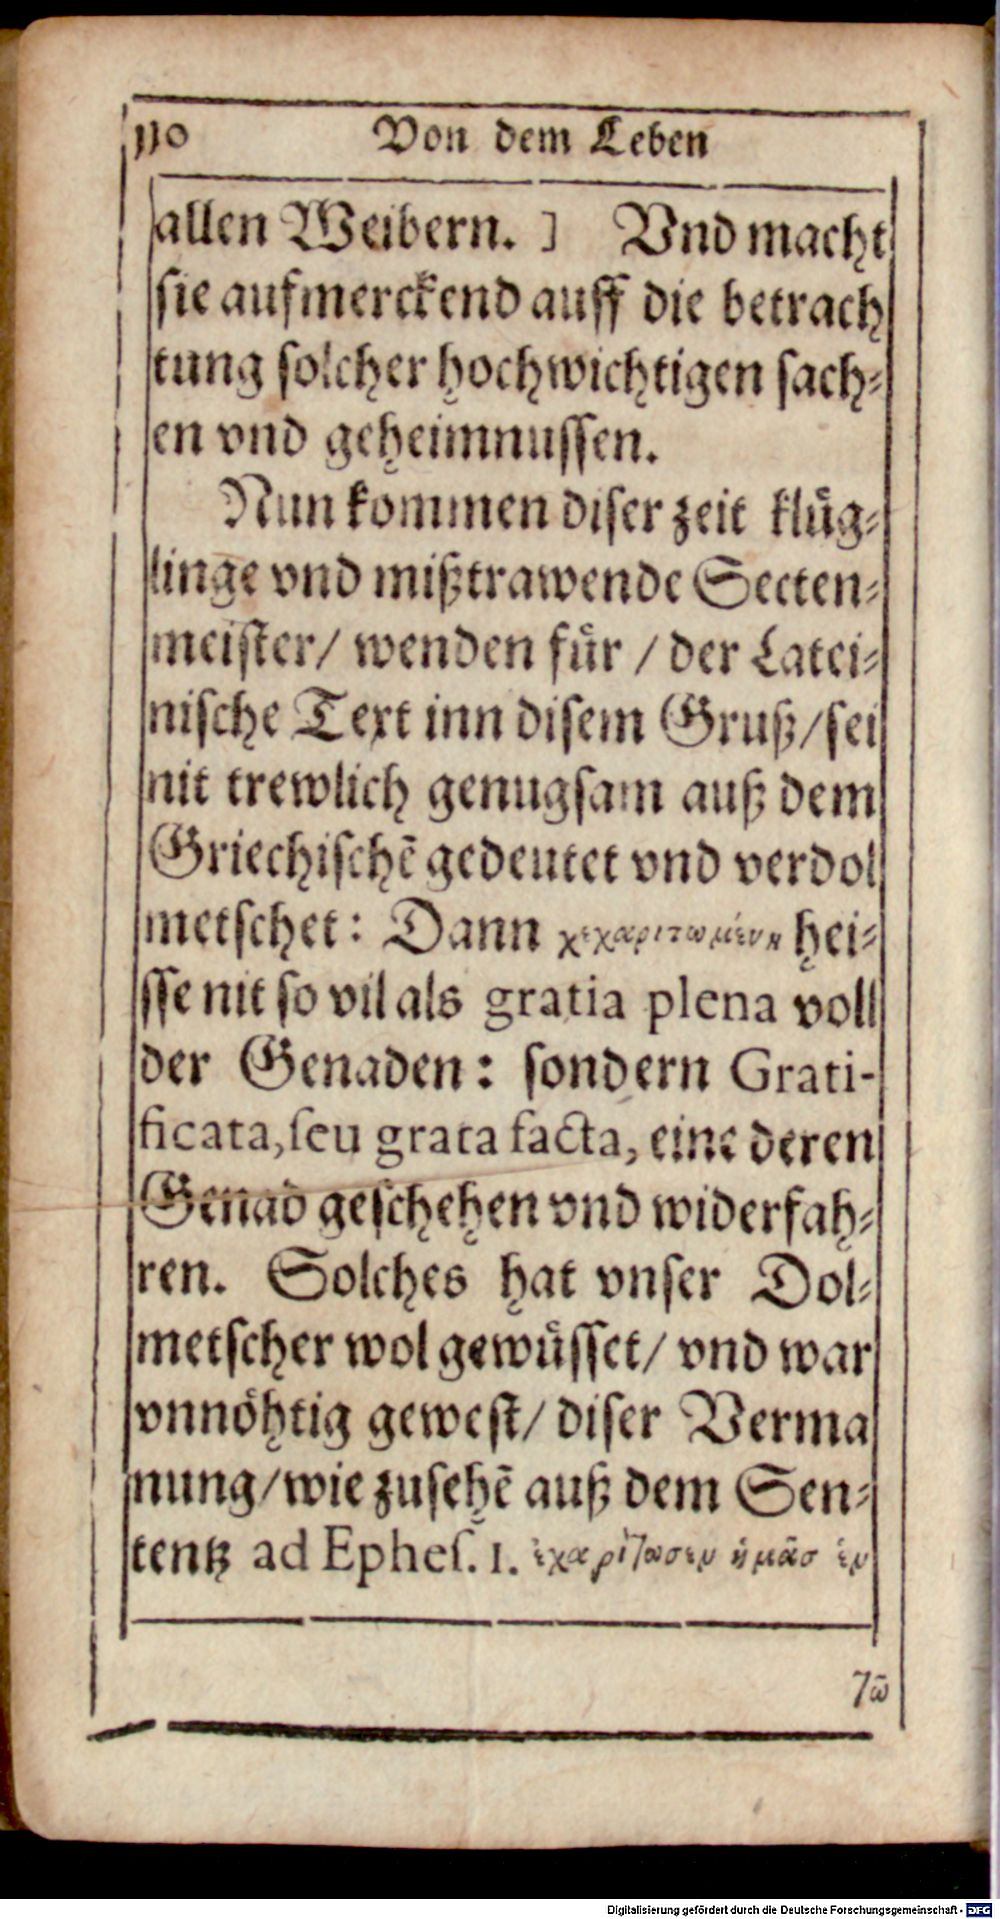 110 Von dem Leben
allen Weibern. ] Vnd macht
sie aufmerckend auff die betrach
tung solcher hochwichtigen sach⸗
en vnd geheimnussen.
Nun kommen diser zeit klüg⸗
linge vnd mißtrawende Secten⸗
meister/ wenden für / der Latei⸗
nische Text inn disem Gruß/sei
nit trewlich genugsam auß dem
Griechischē gedeutet vnd verdol
metschet: Dann χεχαριτωμένη hei⸗
sse nit so vil als gratia plena voll
der Genaden: sondern Grati-
ficata, seu grata facta, eine deren
Genad geschehen vnd widerfah⸗
ren. Solches hat vnser Dol⸗
metscher wol gewüsset/ vnd war
vnnöhtig gewest/ diser Verma
nung/wie zusehē auß dem Sen⸗
tentz ad Ephes. 1. ἐχαρίτωσεν ἡμᾶσ ἐν
τῶ
Digitalisierung gefördert durch die Deutsche Forschungsgemeinschaft - DFG